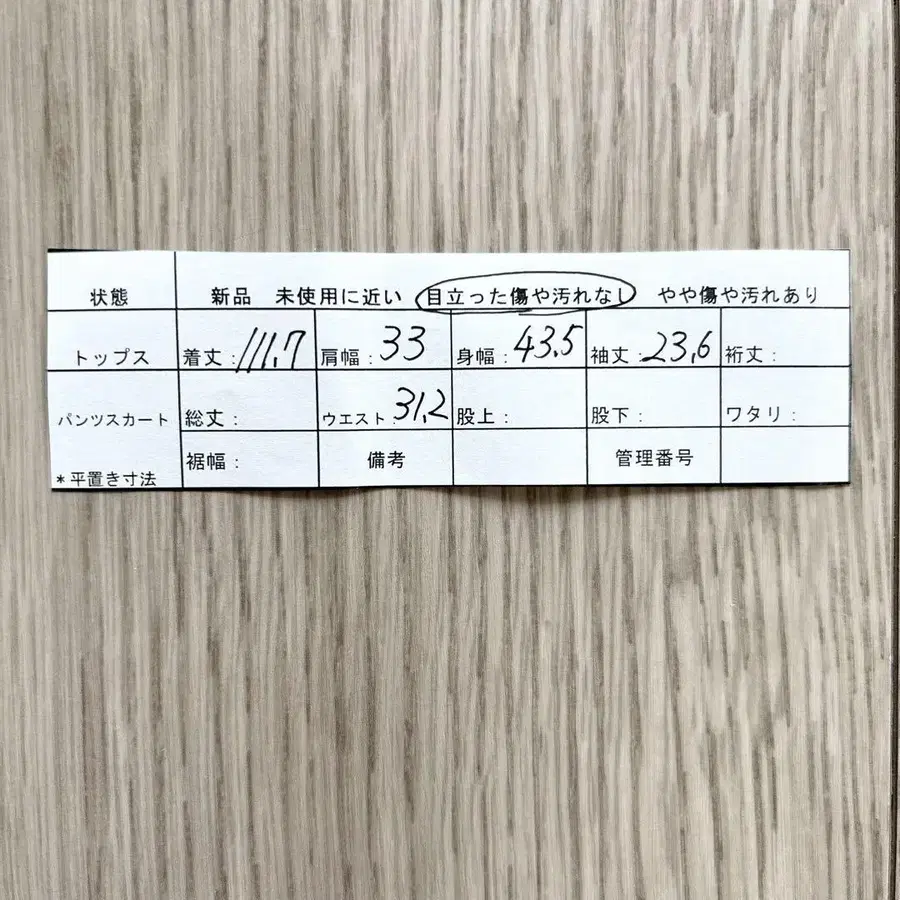 状態 新品 未使用に近い 目立った傷や汚れなし やや傷や汚れあり
トップス 着丈:111.7 肩幅:33 身幅:43.5 袖丈:23.6 裄丈:
パンツスカート 総丈: ウエスト:31.2 股上: 股下: ワタリ:
*平置き寸法 裾幅: 備考 管理番号